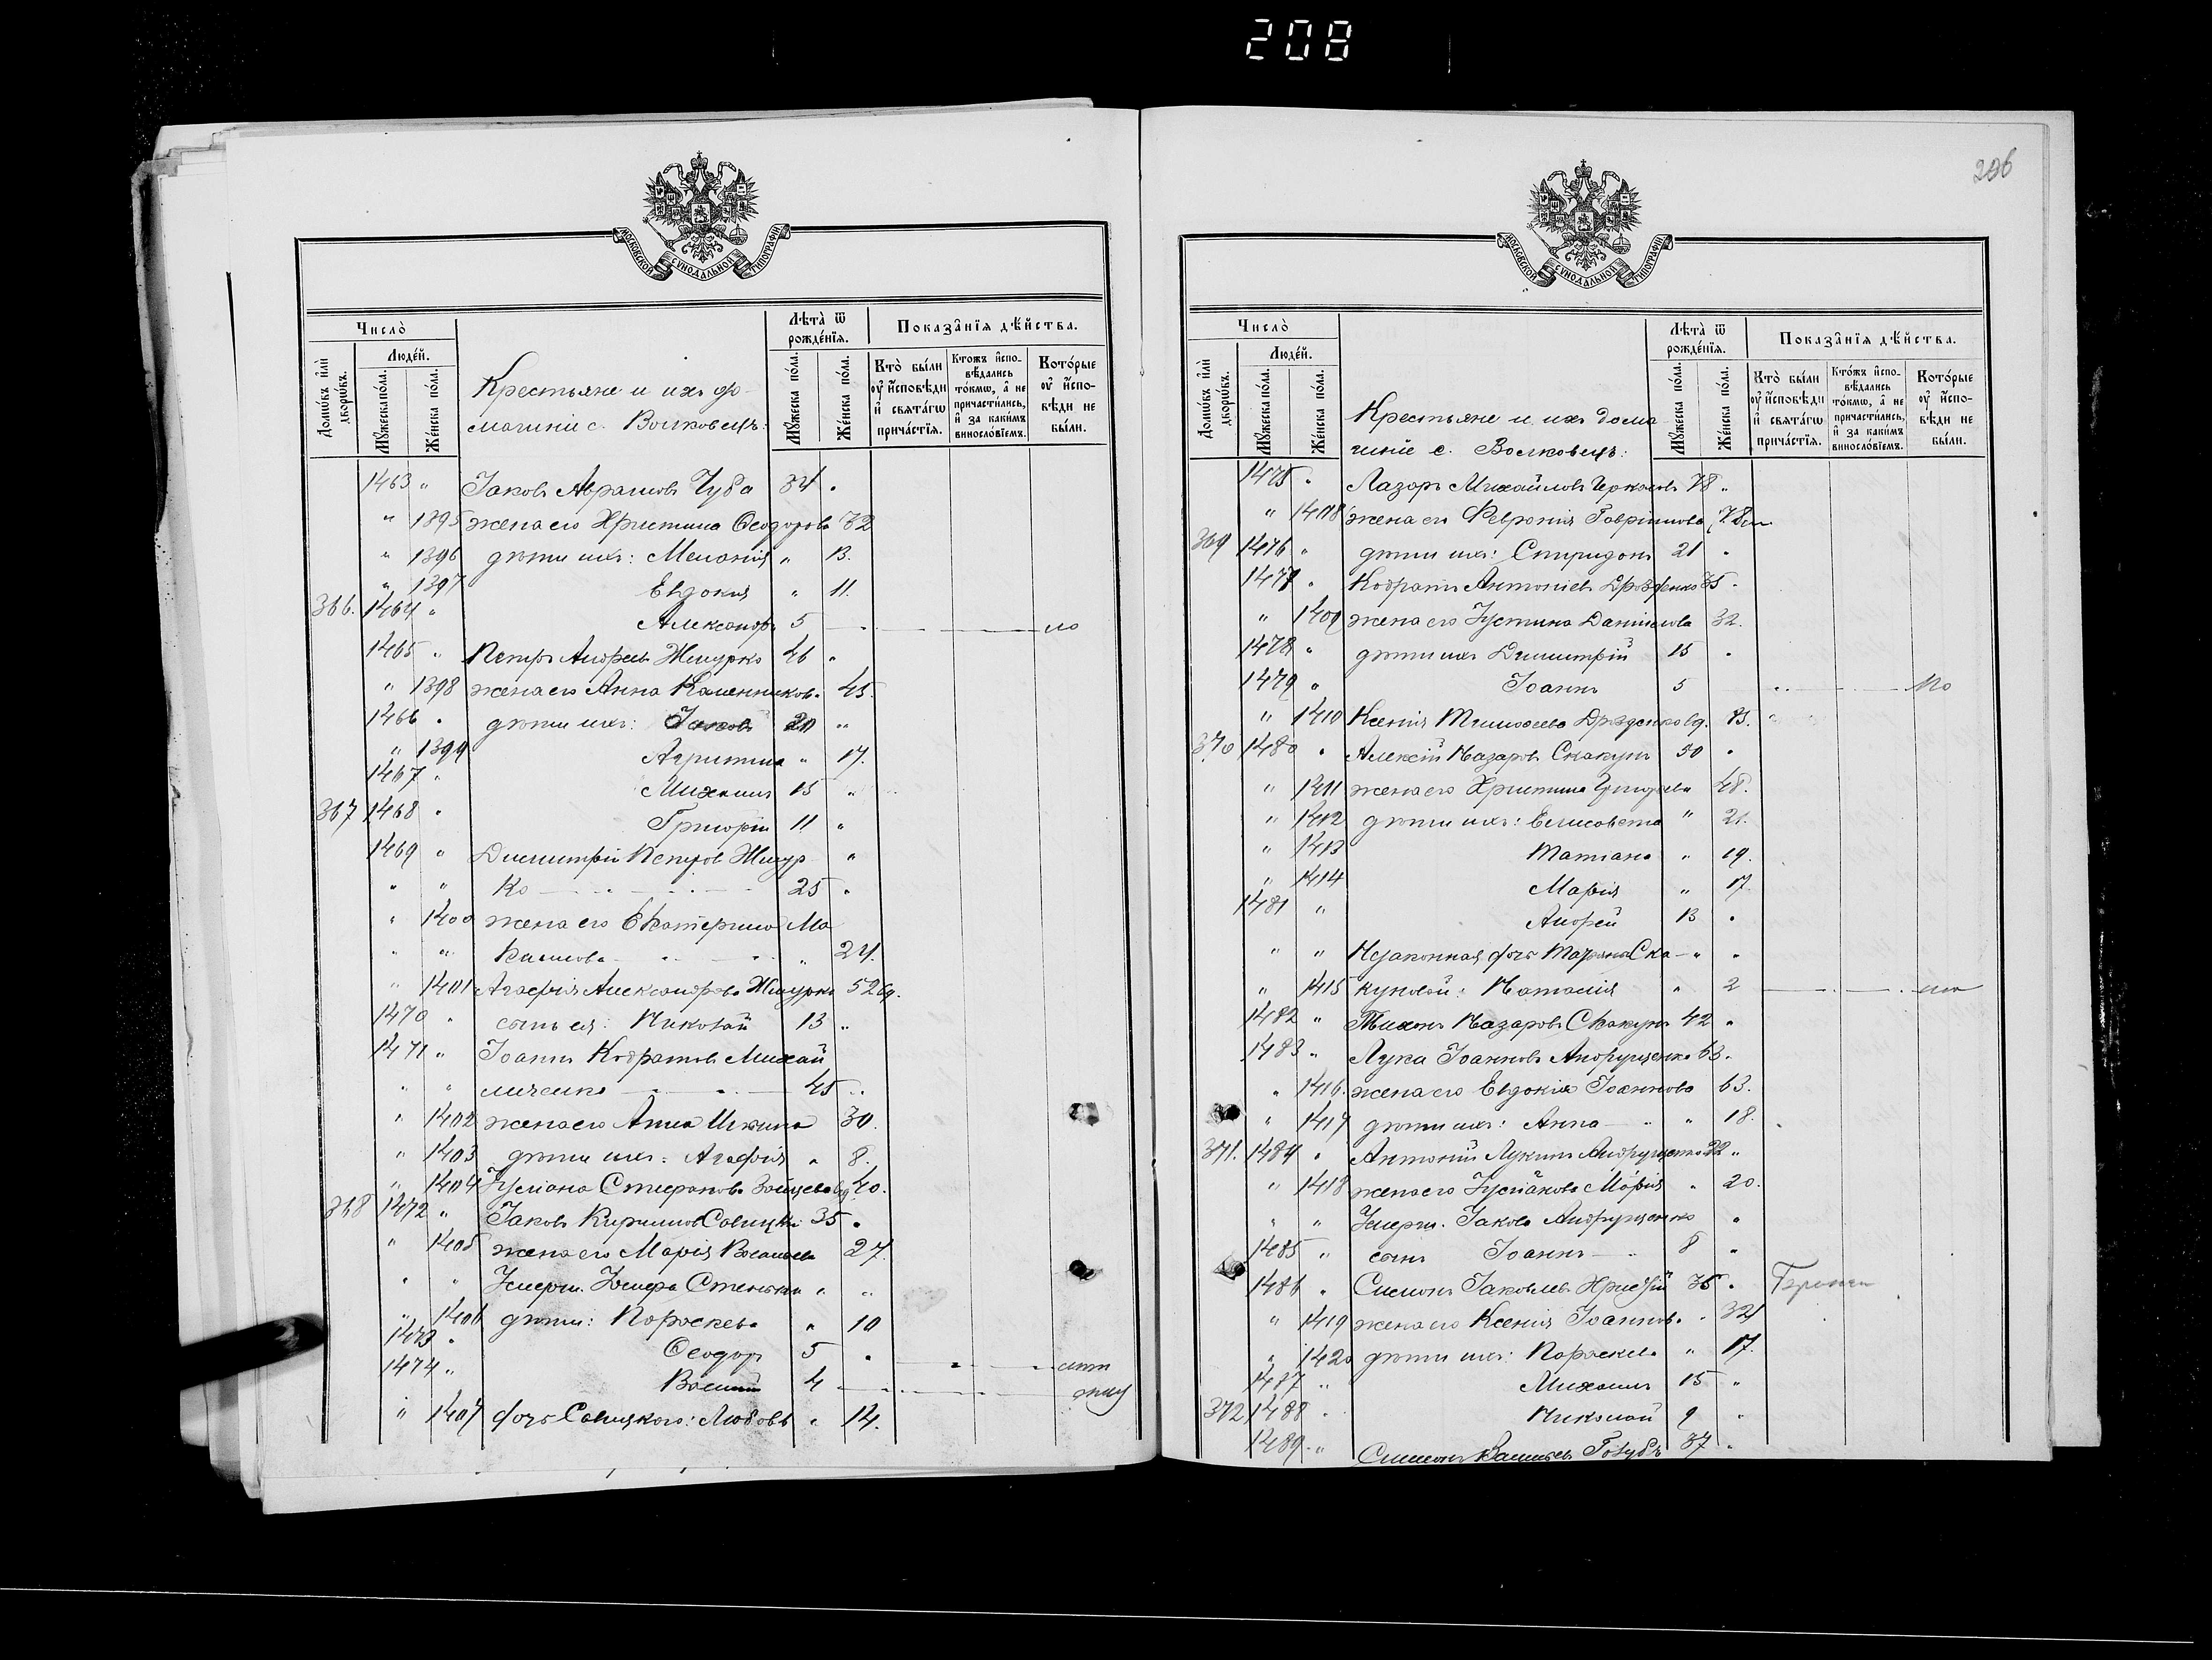 208
206
МОСКОВСКОЙ СѴНОДАЛЬНОЙ ТИПОГРАФІИ
Число̀
Людей.
Домѡвъ и҆лѝ дворѡвъ.
Мꙋжеска пола.
Женска пола.
Крестьяне и ихъ до-
машніе с. Волковецъ:
Лѣта̀ ѿ рожденїѧ.
Мꙋжеска пола.
Женска пола.
Показанїѧ дѣйства.
Кто̀ были ᲂу҆ и҆сповѣди и҆ свѧтагѡ причастїѧ.
Ктожъ и҆споведались токмѡ, а҆ не причастились, и҆ за какимъ винословїемъ.
Которые ᲂу҆ и҆споведи не были.
1463 " Іаковъ Аврамовъ Чуба 34 "
" 1395 жена его Христина Ѳеодорова 32
" 1396 дѣти ихъ: Меланія " 13.
" 1397 Евдокія " 11.
366. 1464 " Александръ 5 — мо
1465 " Петръ Андреевъ Жмурко 46 "
" 1398 жена его Анна 45.
1466 " дѣти ихъ: Іаковъ 20 "
" 1399 Агрипина " 17.
1467 " Михаилъ 15 "
367 1468 " Григорій 11 "
1469 " Димитрій Петровъ Жмур "
" " ко — 25 "
" 1400 жена его Екатерина Ма
" " кимова — " 24.
" 1401 Агафія Александрова Жмурко 52 вд.
1470 " сынъ ея: Николай 13 "
1471 " Іоаннъ Кодратовъ Михай
" " личенко — 45 "
" 1402 жена его Анна 30.
" 1403 дѣти ихъ: Агафія " 8.
" 1404 Іуліана Стефанова Зайцева вд. 40.
368 1472 " Іаковъ Кирилловъ Савицкій 35 "
" 1405 жена его Марія Васильева 27.
" " Умерш. " "
" 1406 дѣти: Параскева " 10
1473 " Ѳеодоръ 5 "
1474 " Василій 4
" 1407 дочь Савицкаго: Любовь " 14.
МОСКОВСКОЙ СѴНОДАЛЬНОЙ ТИПОГРАФІИ
Число̀
Людей.
Домѡвъ и҆лѝ дворѡвъ.
Мꙋжеска пола.
Женска пола.
Крестьяне и ихъ дома
шніе с. Волковецъ:
Лѣта̀ ѿ рожденїѧ.
Мꙋжеска пола.
Женска пола.
Показанїѧ дѣйства.
Кто̀ были ᲂу҆ и҆сповѣди и҆ свѧтагѡ причастїѧ.
Ктожъ и҆споведались токмѡ, а҆ не причастились, и҆ за какимъ винословїемъ.
Которые ᲂу҆ и҆споведи не были.
1475 " Лазарь Михайловъ 78 "
" 1408 жена его Февронія Гавріилова
369 1476 " дѣти ихъ: Спиридонъ 21 "
1477 " Кодратъ Антоніевъ Дрозденко 35 "
" 1409 жена его Іустина Даніилова 32.
1478 " дѣти ихъ Димитрій 15 "
1479 " Іоаннъ 5 — мо
" 1410 Ксенія Тимоѳеева Дрозденко вд. 85.
370 1480 " Алексій Назаровъ Скакунъ 50 "
" 1411 жена его Христина Григорьева 48.
" 1412 дѣти ихъ: Елисавета " 21.
" 1413 Татіана " 19.
" 1414 Марія " 17.
1481 " Андрей 13 "
" " Незаконная дочь Маріи Ска — " "
" 1415 куновой: Наталія " 2 — мо
1482 " Тихонъ Назаровъ Скакунъ 42 "
1483 " Лука Іоанновъ Андрущенко 63 "
" 1416. жена его Евдокія Іоаннова 63.
" 1417 дѣти ихъ: Анна — " 18.
371. 1484 " Антоній Лукинъ Андрущенко 22 "
" 1418 жена его Іуліакова Марія " 20.
" " Умерш. Іакова Андрущенко "
1485 " сынъ Іоаннъ — 8 "
1486 " Симонъ Іаковлевъ 35 "
" 1419 жена его Ксенія Іоаннова " 32
" 1420 дѣти ихъ: Параскева " 17.
1487 " Михаилъ 15 "
372 1488 " Николай 9 "
1489 " Симеонъ Васильевъ Голубъ 37 "